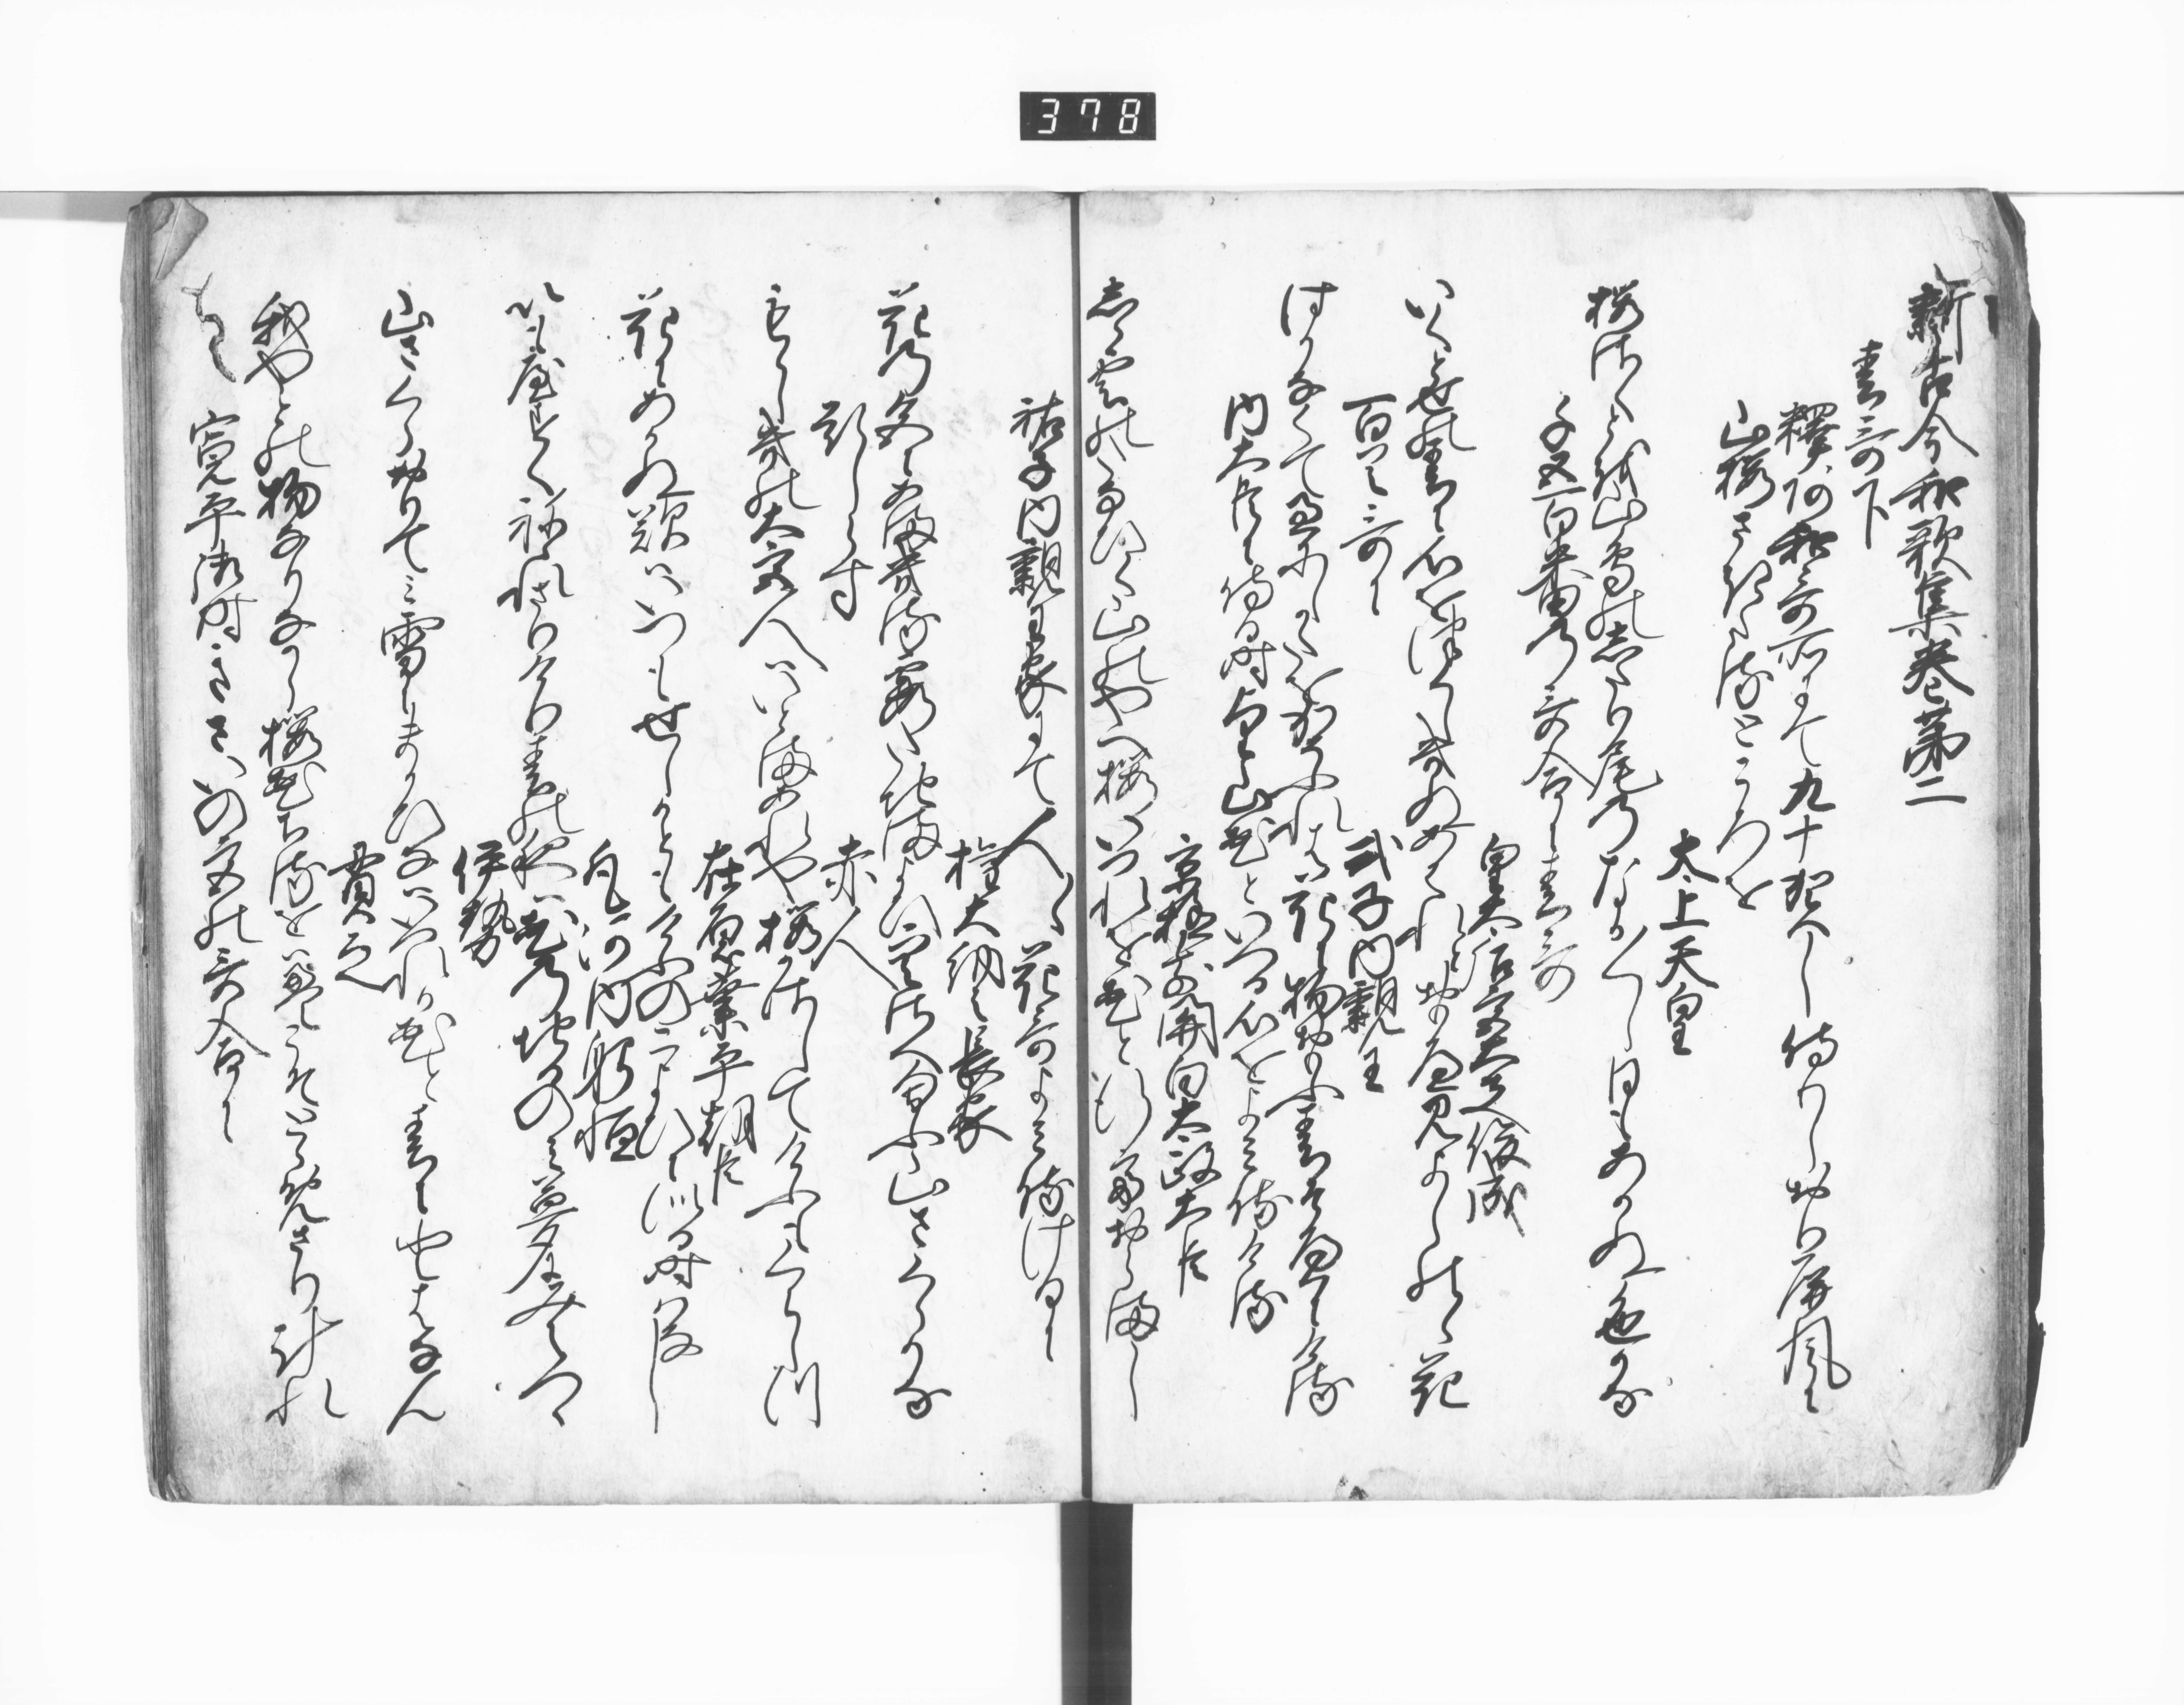 378
新古今和歌集巻第二
春哥下
釋阿和哥所にて九十賀し侍りしおり屏風に
山桜さきたる所を
太上天皇
桜さくとを山鳥のしたり尾のなか／＼し日もあかぬ色かな
千五百番哥合に春哥
皇太后宮大夫俊成
いくとせの春に心をつくしきぬあはれとおもへみよしのゝ花
百首哥に
式子内親王
はかなくて過にしかたをかそふれは花に物おもふ春そへにける
内大臣に侍る時望山花といへる心をよみ侍ける
京極前関白太政大臣
しら雲のたな引山のやへ桜いつれを花と行ておらまし
祐子内親王家にて人々花哥よみ侍けるに
権大納言長家
花の色にあまきる霞たちまよひ空さへ匂ふ山さくらかな
題しらす
赤人
もゝしきの大宮人はいとまあれや桜かさしてけふもくらしつ
在原業平朝臣
花にあかぬ歎はいつもせしかともけふのこよひに似る時はなし
凡河内躬恒
いもやすくねられさりけり春の夜は花のちるのみ夢にみえつゝ
伊勢
山さくらちりてみ雪にまかひなはいつれか花と春にとはなん
貫之
我やとの物なりなから桜花ちるをはえこそとゝめさりけれ
寛平御時きさいの宮の哥合に